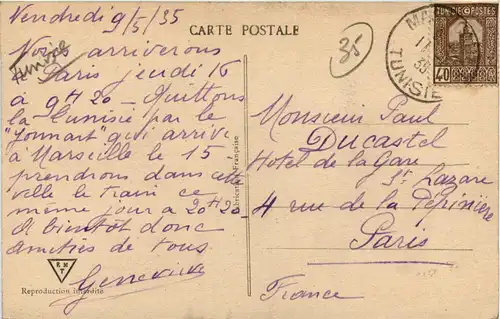 Vendredi 9/5/35
CARTE POSTALE
35
Nous arriverons
Paris jeudi 16
à 9H20 - Quittons
la Tunisie par le
"Jonnart" qui arrive
à Marseille le 15
prendrons dans cette
ville le train ce
même jour à 20H20
A bientôt donc
amitiés de tous
Genevieve
RMT
Reproduction interdite
Africaine Française
TUNISIE POSTES
40
TUNISIE
Monsieur Paul
Ducastel
Hotel de la Gare
St Lazare
4 rue de la Pépinière
Paris
France